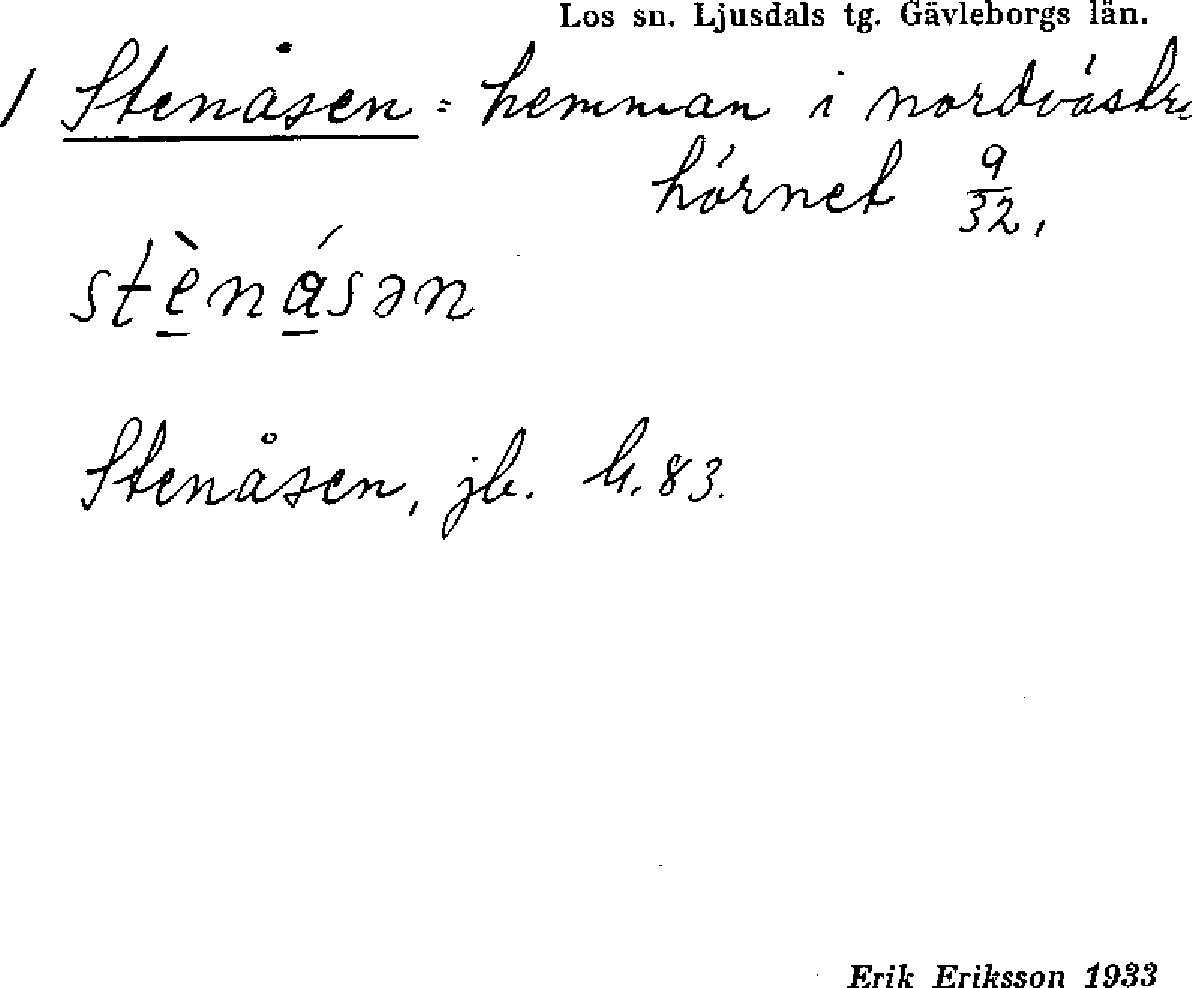 Los sn. Ljusdals tg. Gävleborgs län.
1 Stenåsen = hemman i nordvästr.
hörnet 9/32,
stènásən
Stenåsen, jb. h. 83.
Erik Eriksson 1933